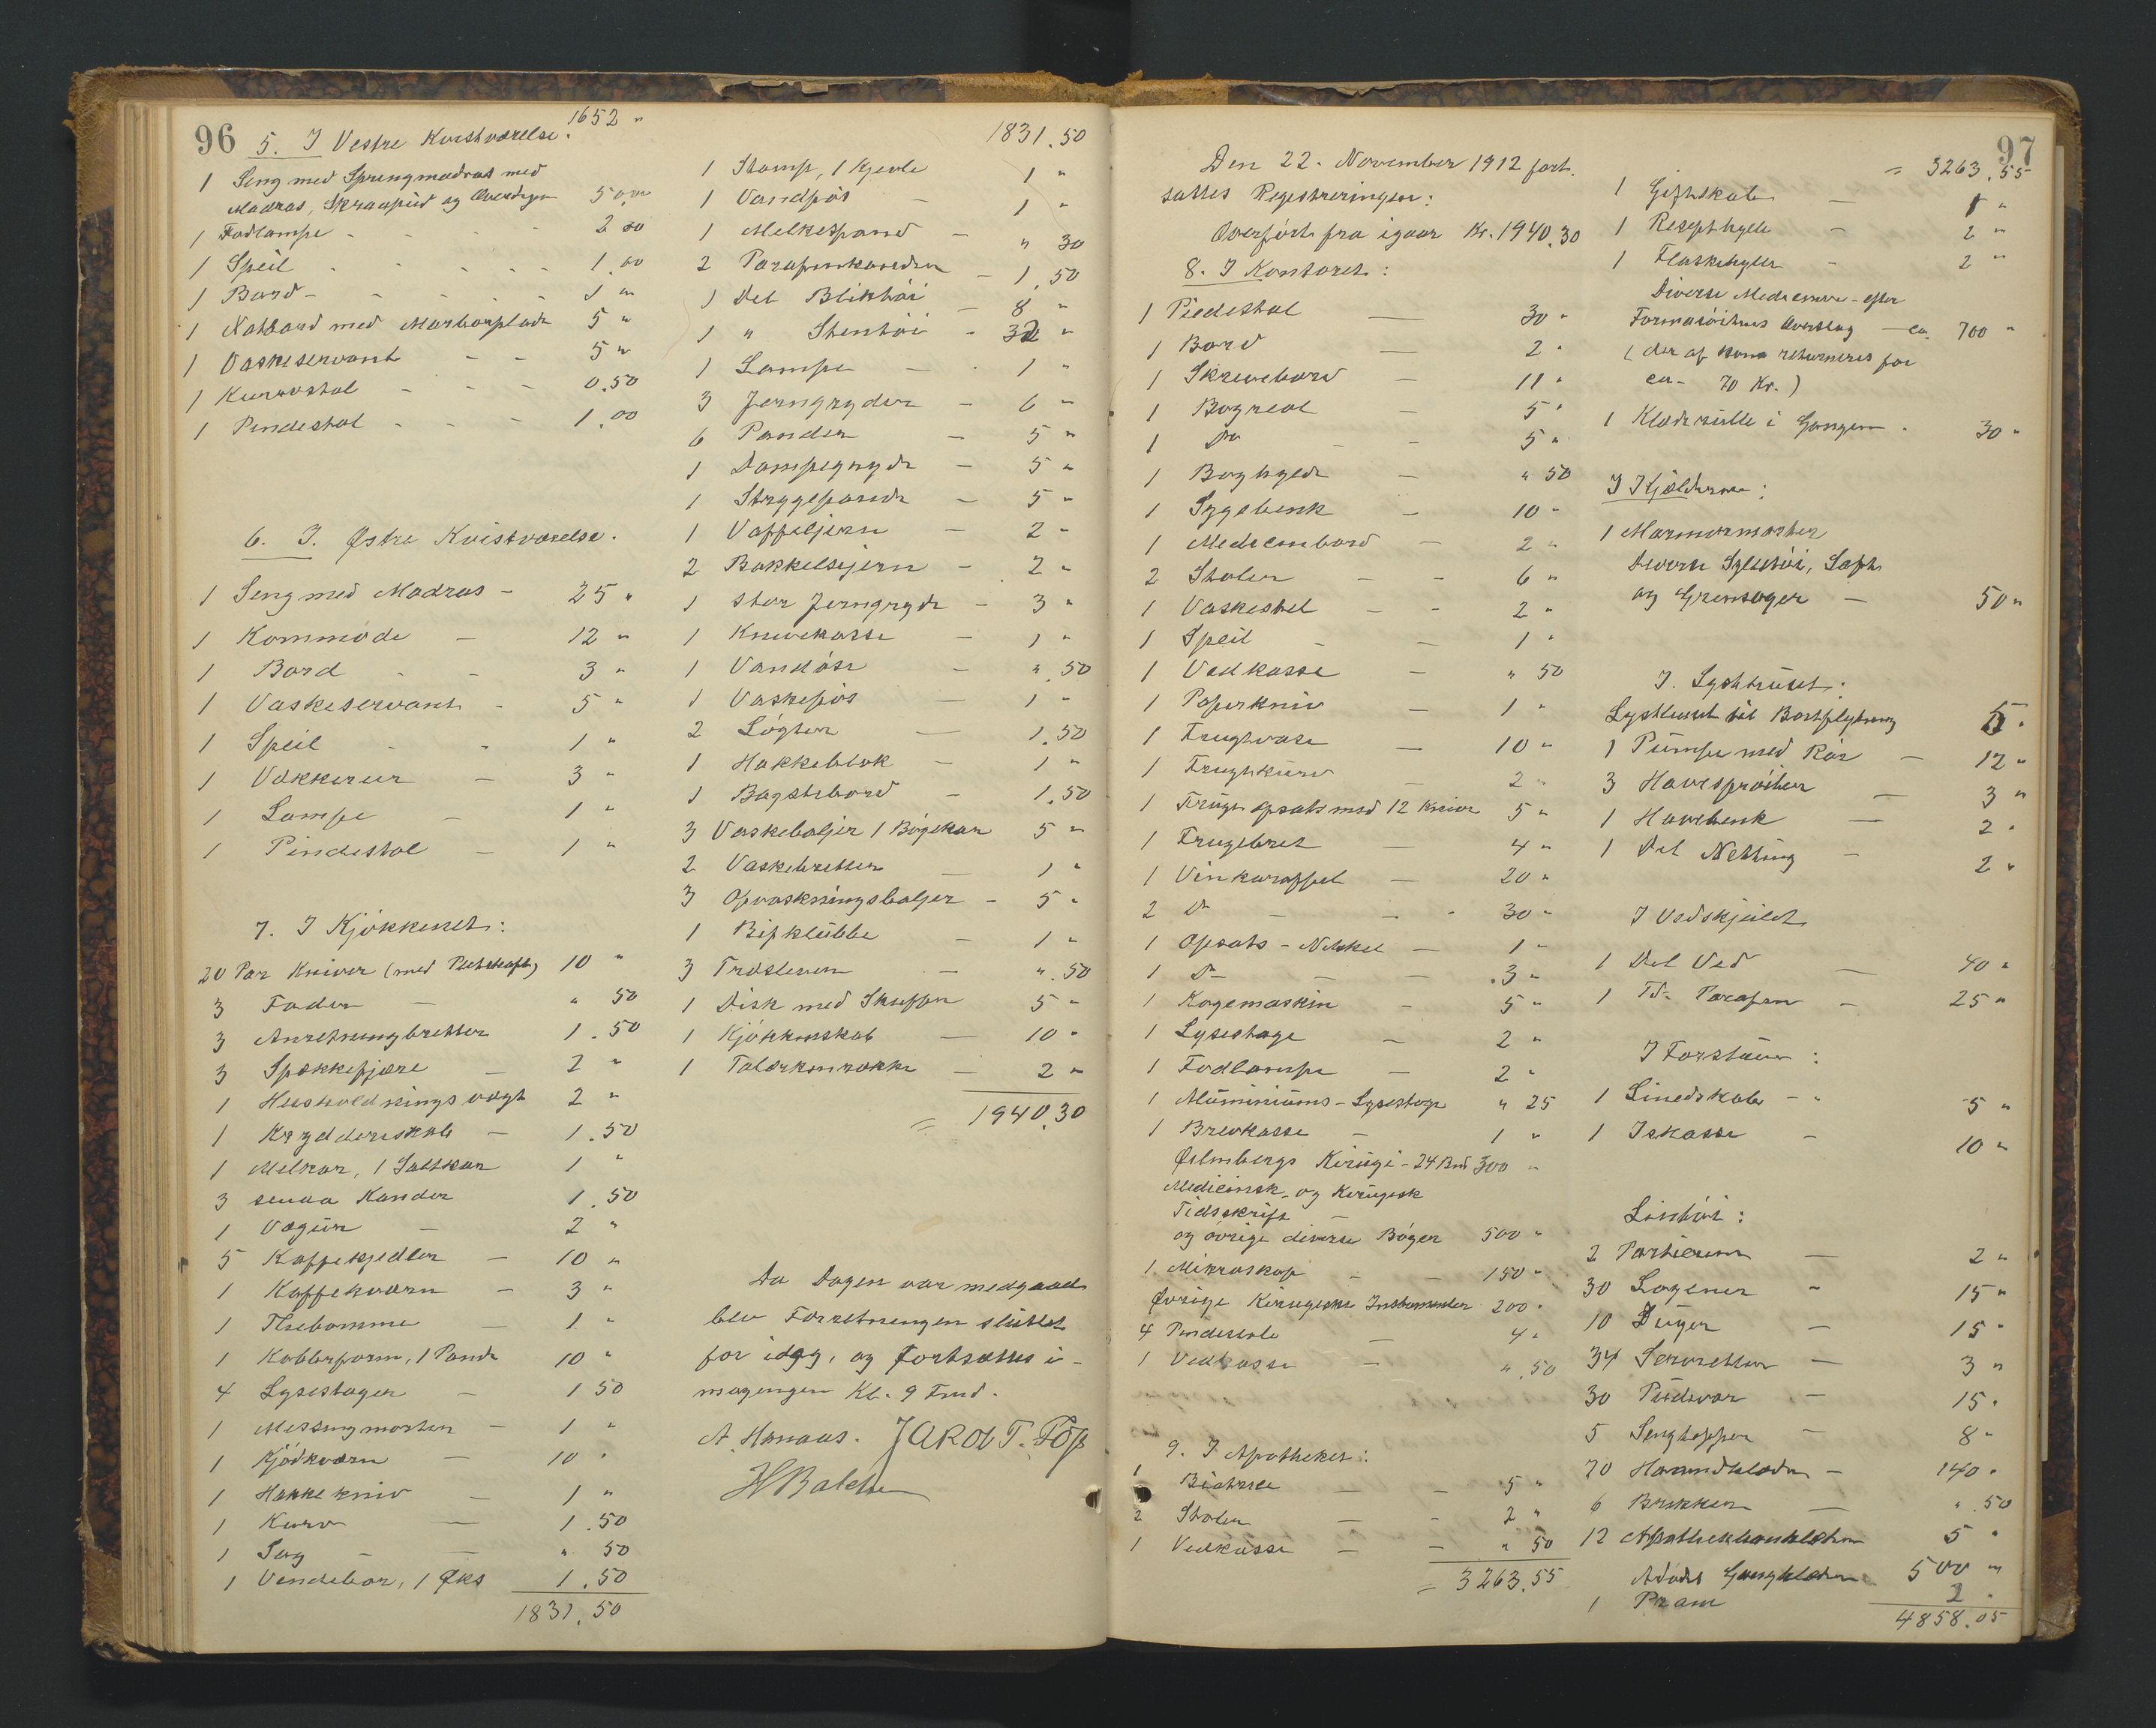 96
1652 "
5. I Vestre Kvistværelse.
1 Seng med Springmadras med
Madras, Skraapud og Overdyne 50,00
1 Fodlampe - 2 00
1 Speil - 1,00
1 Bord - 1 "
1 Natbord med Marborplade 5 "
1 Vaskeservant - 5 "
1 Kurvstol - 0.50
1 Pindestol - 1.00
6. I. Østre Kvistværelse.
1 Seng med Madras - 25 "
1 Kommode - 12 "
1 Bord - 3 "
1 Vaskeservant - 5 "
1 Speil - 1 "
1 Vækkerur - 3 "
1 Lampe - 1 "
1 Pindestol - 1 "
7. I Kjøkkenet:
20 Par Kniver (med Pletskaft) 10 "
3 Fader - " 50
3 Anretningbretter 1.50
3 Spækkefjære - 2 "
1 Husholdningsvægt 2 "
1 Krydderiskab - 1.50
1 Melkar, 1 Saltkar 1 "
3 smaa Kander 1.50
1 Vægur - 2 "
5 Kaffekjedler - 10 "
1 Kaffekværn - 3 "
1 Thebomme - 1 "
1 Kobberform, 1 Pande 10 "
4 Lysestager - 1 50
1 Messingmorter - 1 "
1 Kjødkværn - 10 "
1 Hakkekniv - 1 "
1 Kurv - 1.50
1 Sag - " 50
1 Vendebor, 1 Øks 1.50
1831.50
1831.50
1 Stamp, 1 Kjevle 1 "
1 Vandføs - 1 "
1 Melkespand - " 30
2 Parafinkander - 1,50
1 Del Bliktøi - 8 "
1 " Stentøi - 32 "
1 Lampe - 1 "
3 Jerngryder - 6 "
6 Pander - 5 "
1 Dampegryde - 5 "
1 Strygepande - 5 "
1 Vaffeljern - 2 "
2 Bakkelsejern - 2 "
1 stor Jerngryde - 3 "
1 Knivekasse - 1 "
1 Vandøse - ".50
1 Vaskeføs - 1 "
2 Løgter - 1.50
1 Hakkeblok - 1 "
1 Bagstebord - 1.50
3 Vaskebaljer 1 Bøgekar 5 "
2 Vaskebretter - 1 "
3 Opvaskningsbaljer - 5 "
1 Bifklubbe - 1 "
3 Træsleven - ".50
1 Disk med Skuffer 5 "
1 Kjøkkenskab - 10 "
1 Talerkenrække - 2 "
= 1940.30
Da Dagen var medgaaet
blev Forretningen sluttet
for idag, og fortsættes i-
morgengen Kl. 9 Frmd.
A. Hanaas. Jakob T. Foss
H Balch
97
Den 22. November 1912 fort.
sattes Registreringen:
Overført fra igaar Kr. 1940.30
8. I Kontoret:
1 Piedestal - 30 "
1 Bord - 2 "
1 Skrivebord - 11 "
1 Bogreol - 5 "
1 Do - 5 "
1 Boghylde - " 50
1 Sygebenk - 10 "
1 Medicinbord - 2 "
2 Stoler - 6 "
1 Vaskestel - 2 "
1 Speil - 1 "
1 Vedkasse - " 50
1 Papirkniv - 1 "
1 Frugtvase - 10 "
1 Frugtkurv - 2 "
1 Frugtopsats med 12 Kniver 5 "
1 Frugebret - 4 "
1 Vinkaraffel - 20 "
2 Do - 30 "
1 Opsats - Nikkel - 1 "
1 Do - 3 "
1 Kogemaskin - 5 "
1 Lysestage - 2 "
1 Fodlampe - 2 "
1 Aluminiums-Lysestage " 25
1 Brevkasse - 1 "
Kirugi - 24 Bind 300 "
Medicinsk- og Kirugisk
Tidsskrift -
og øvrige diverse Bøger 500 "
1. Mikroskop - 150 "
Øvrige Kirugiske Instrumenter 200 "
4 Pindestole - 4 "
1 Vedkasse - ".50
9. I Apotheket:
1 - 5 "
2 Stoler - 2 "
1 Vedkasse - " 50
= 3263.55
= 3263.55
1 Giftskab - 1 "
1 Resepthylle - 2 "
1 Flaskehylle - 2 "
Diverse Medicinere - efter
Farmasøitens Overslag - ca. 700 "
(der af kan returneres for
ca - 70 Kr.)
1 Klæderulle i Gangen - 30 "
I Kjælderen:
1 Marmormorter
Diverse Syltetøi, Saft
og Grønsager - 50 "
I. Lysthuset:
Lysthuset til Bortflytning 5 "
1 Pumpe med Rør - 12 "
3 Havesprøiter - 3 "
1 Havebenk - 2 "
1 Del Netting - 2 "
I Vedskjulet
1 Del Ved - 40 "
1 Td. Parafin - 25 "
I Forstuen:
1 Linedskab - 5 "
1 Iskasse - 10 "
Lintøi:
2 Portierer - 2 "
30 Lagener - 15 "
10 Duger - 15 "
34 Servietter - 3 "
30 Pudevar - 15 "
5 Sengtepper - 8 "
70 Haandklæder - 140 "
6 Brikker - ".50
12 Apothekhandklæder 5 "
Afdødes Gangklæder 500 "
1 Pram 2 "
4858.05